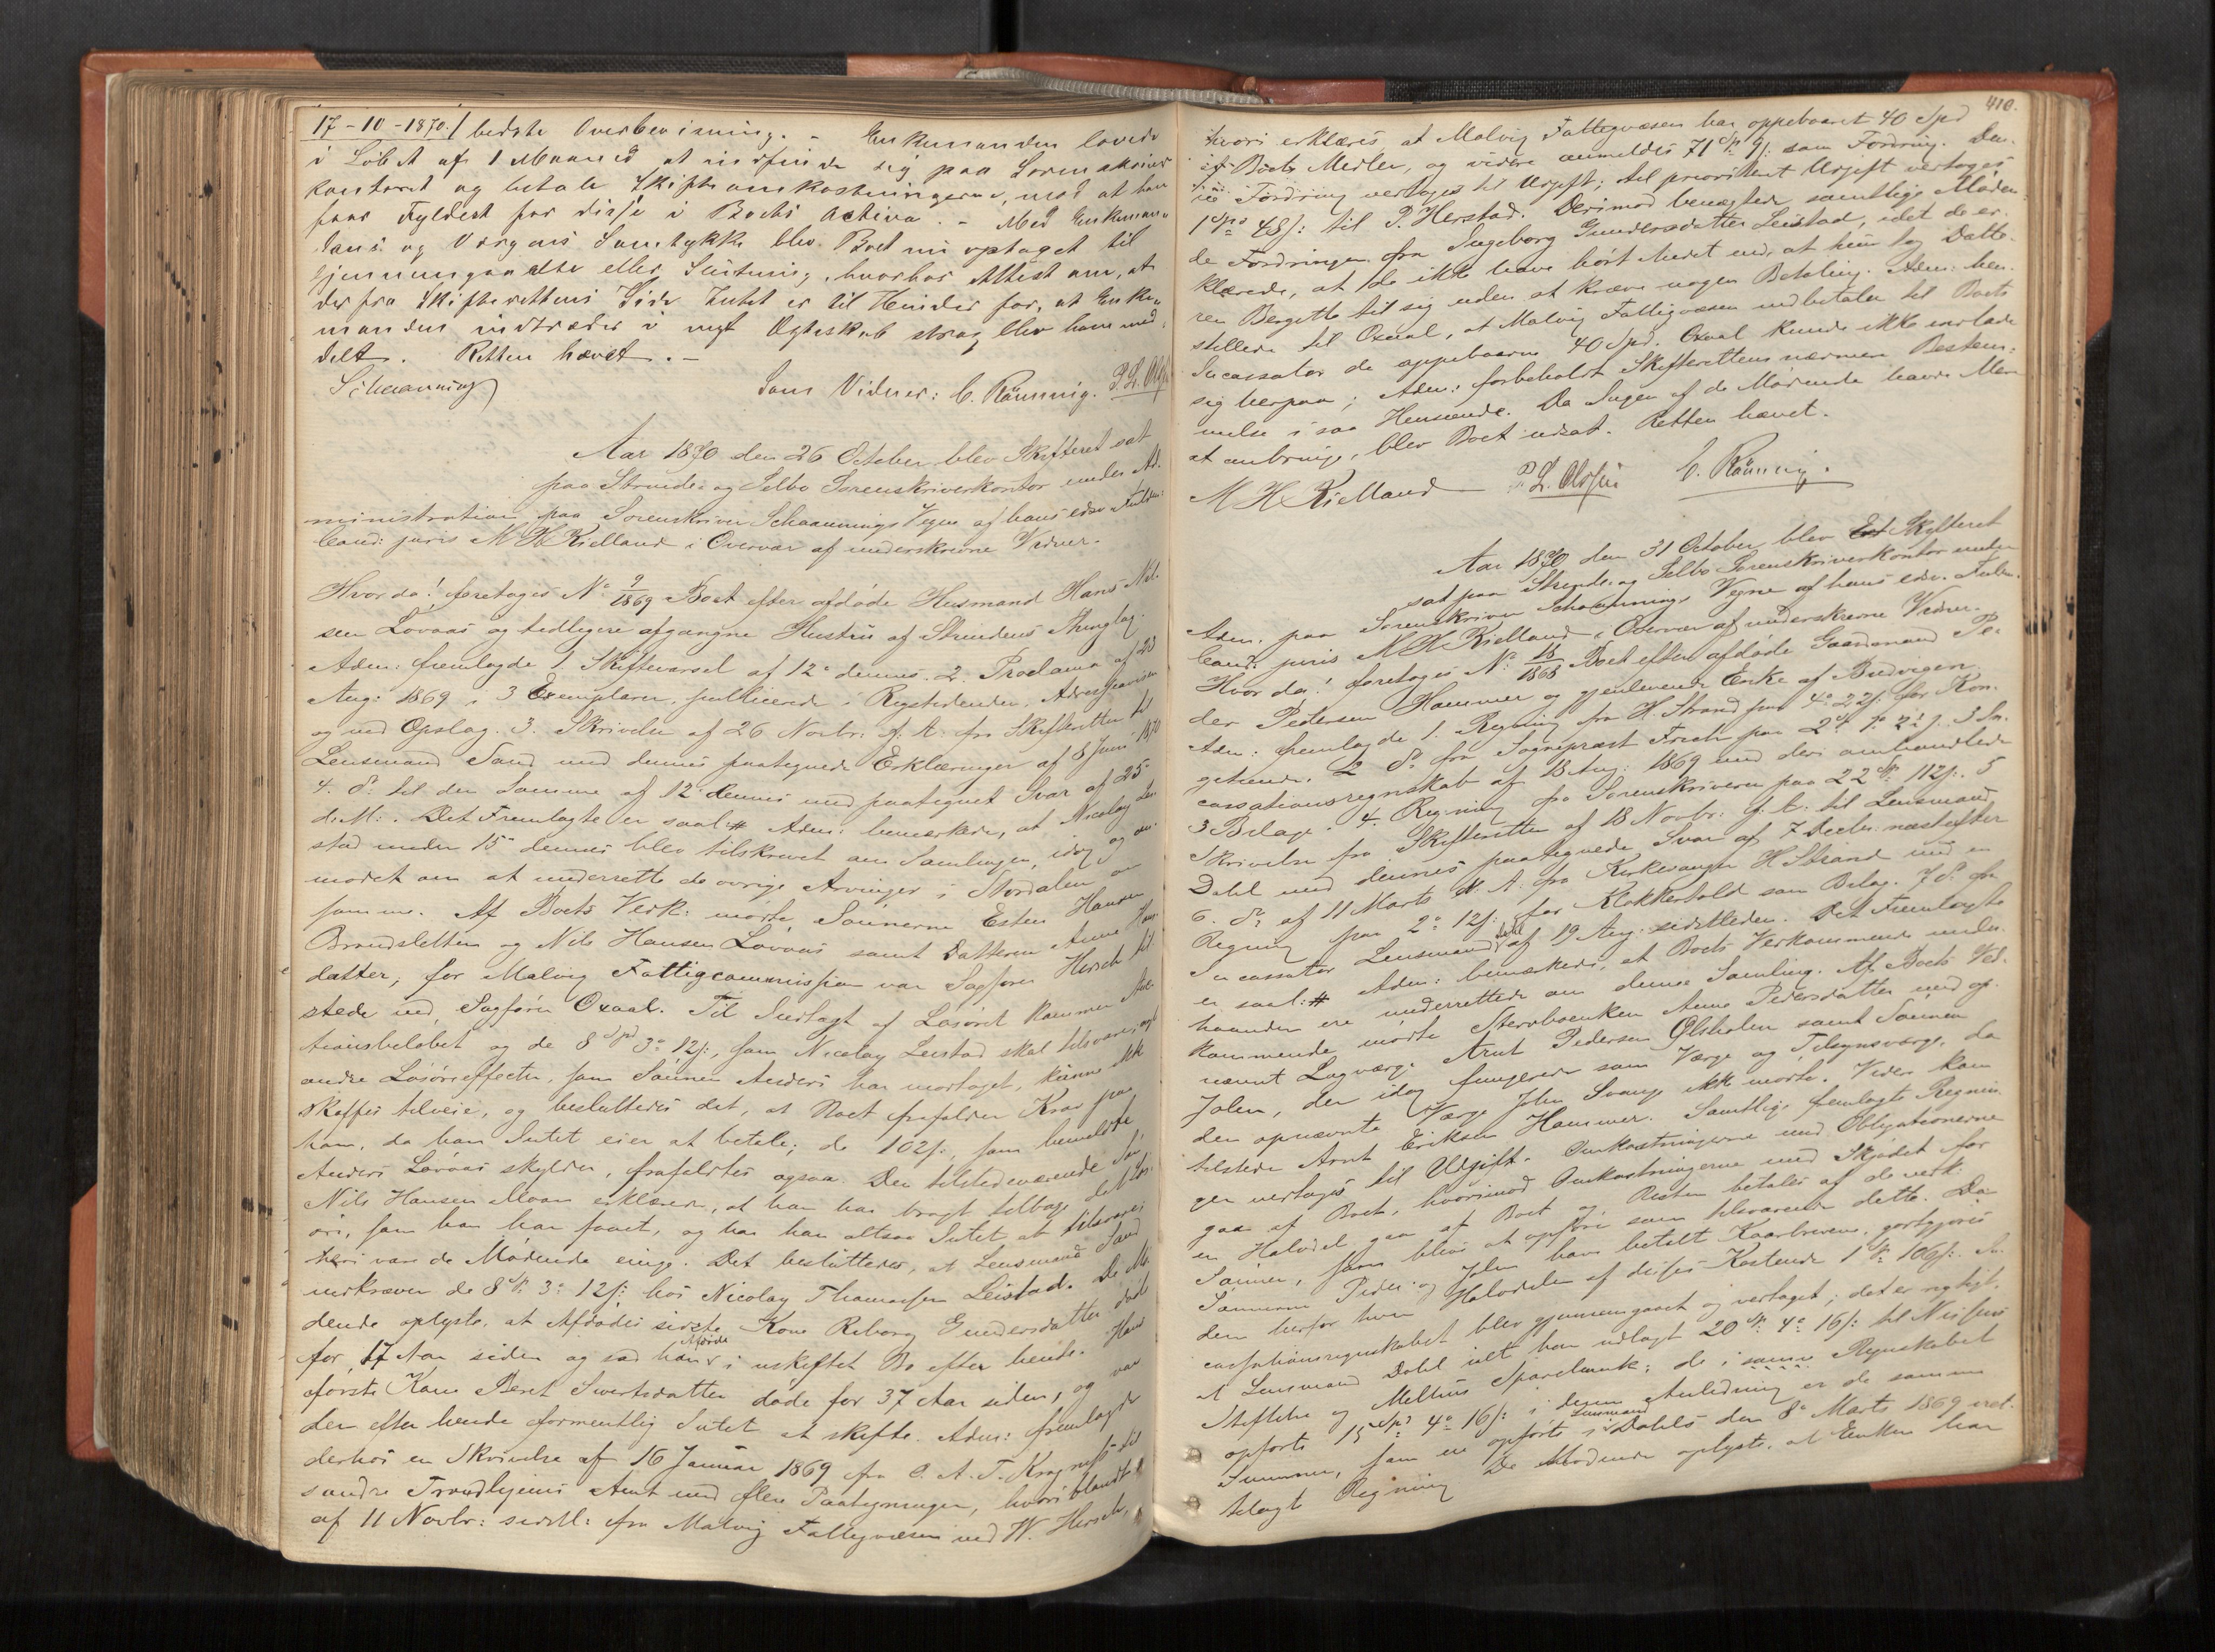 17-10-1870./ bedste Overbeviisning. - Enkemanden lovede
i Löbet af 1 Maaned at indfinde sig paa Sorenskriver
kontoret og betale Skifteomkostningerne, mod at han
faar Fyldest for disse i Boets Activa. - Med Enkeman
dens og Værgens Samtykke blev Boet nu optaget til
Gjennemgaaelse eller Slutning, hvorhos Attest om, at
der fra Skifterettens Side Intet er til Hinder for, at Enke
manden indtræder i nyt Ægteskab strax blev ham med
delt. Retten hævet. -
Schaanning
Som Vidner: C. Rönning. P. L. Olsen
Aar 1870 den 26 October blev Skifteret sat
paa Strinde- og Selbo Sorenskriverkontor under Ad-
ministration paa Sorenskriver Schaannings Vegne af hans edsv. Fuldm:
Cand: juris M H Kielland i Overvær af underskrevne Vidner.
Hvor da! foretoges No 9/1869 Boet efter afdöde Husmand Hans Nil-
sen Lövaas og tidligere afgangne Hustru af Strindens Thinglag.
Adm: fremlagde 1. Skiftevarsel af 12te dennes. 2. Proclama af 23
Aug: 1869 i 3 Exemplarer, publicerede i Rigstidenden, Adresseavisen
og ved Opslag. 3. Skrivelse af 26 Novbr: f. A. fra Skifteretten til
Lensmand Sand med dennes paategnede Erklæringer af 8 Juni 1870
4. do til den Samme af 12te dennes med paategnet Svar af 25
d. M: . Det Fremlagte er saal: # Adm: bemærkede, at Nicolay Lei-
stad under 15de dennes blev tilskrevet om Samlingen idag og an-
modet om at underrette de övrige Arvinger i Stördalen om
samme. Af Boets Vedk: mödte Sönnerne Esten Hansen
Brandsletten og Nils Hansen Lövaas samt Datteren Anne Hans-
datter; for Malvig Fattigcommission var Sagförer Hirsch til
stede ved Sagförer Oxaal. Til Indtægt af Lösöret kommer Auc-
tionsbelöbet og de 8 Spd 3 o 12 s:, som Nicolay Leistad skal tilsvare, og
andre Lösöreeffecter, som Sönnen Anders har modtaget, kunne ikke
skaffes tilveie, og besluttedes det, at Boet frafalder Krav paa
ham, da han Intet eier at betale; de 102 s:, som bemeldte
Anders Lövaas skylder, frafaldtes ogsaa. Den tilstedeværende Sön
Nils Hansen Moan erklærede, at han har bragt tilbage det Lös-
öre, som han har faaet, og har han altsaa Intet at tilsvare;
heri vare de Mödende enige. Det besluttedes, at Lensmand Sand
indkræver de 8 Sp 3 o 12 s: hos Nicolay Thomassen Leistad. De Mö-
dende oplyste, at Afdödes sidste Kone Reborg Gundersdatter döde
for 17 Aar siden og sad hans Afdöde i uskiftet Bo efter hende. Hans
förste Kone Beret Sivertsdatter döde for 37 Aar siden, og var
der efter hende formentlig Intet at skifte. Adm: fremlagde
derhos en Skrivelse af 16 Januar 1869 fra O. A. T. Kragness til
söndre Trondhjems Amt med flere Paategninger, hvori blandt
af 11 Novbr: sidstl: fra Malvig Fattigvæsen ved W. Hirsch,
410.
hvori erklæres, at Malvig Fattigvæsen har oppebaaret 40 Spd
af Boets Midler, og videre anmeldes 71 Sp. 9 s: som Fordring. Den-
ne Fordring vedtages til Udgift; til prioriteret Udgift vedtoges
1 Spd 48 s: til P. Herstad. Derimod benægtede samtlige Möden-
de Fordringen fra Ingeborg Gundersdatter Leistad, idet de er-
klærede, at de ikke have hört Andet end, at hun tog Datte-
ren Bergitte til sig uden at kræve nogen Betaling. Adm: hen-
stillede til Oxaal, at Malvig Fattigvæsen indbetaler til Boets
Incassator de oppebaarne 40 Spd. Oxaal kunde ikke indlade
sig herpaa; Adm: forbeholdt Skifterettens nærmere Bestem-
melse i saa Henseende. Da Ingen af de Mödende havde Mere
at anbringe, blev Boet udsat. Retten hævet.
M H Kielland P. L. Olsen C. Rönning.
Aar 1870 den 31 October blev Ext Skifteret
sat paa Strinde- og Selbo Sorenskriverkontor under
Adm. paa Sorenskriver Schaannings Vegne af hans edsv. Fuldm.
Cand: juris M H Kielland i Overvær af underskrevne Vidner.
Hvor da! foretoges No 18/1868 Boet efter afdöde Gaardmand Pe-
der Pedersen Hammer og gjenlevende Enke af Budvigen.
Adm: fremlagde 1. Regning fra H. Strand paa 4 o 22 s. for Kon-
gebrud. 2 do fra Sogneprest Friech paa 2 Sp 1 o 21 s. 3 In-
cassationsregnskab af 13 Aug: 1869 med deri omhandlede
3 Bilage. 4. Regning fra Sorenskriveren paa 22 Sp. 112 s:. 5
Skrivelse fra Skifteretten af 18 Novbr: f. A. til Lensmand
Dahl med dennes paategnede Svar af 7 Decbr: næstefter
6. do af 11 Marts d. A. fra Kirkesanger H Strand med en
Regning paa 2 o 12 s: for Klokkertold som Bilag. 7 do fra
Incassator Lensmand Dahl af 19 Aug. sidstleden. Det Fremlagte
er saal: # Adm: bemærkede, at Boets Vedkommende under-
haanden ere underrettede om denne Samling. Af Boets Ved-
kommende mödte Stervboenken Anne Pedersdatter med op-
nævnt Lagværge Arnt Pedersen Ølsholm samt Sönnen
John, der idag fungerede som Værge og Tilsynsværge, da
den opnævnte Værge John Svang ikke mödte. Videre kom
tilstede Arnt Eriksen Hammer. Samtlige fremlagte Regnin-
ger vedtoges til Udgift. Omkostningerne med Obligationerne
gaa af Boet, hvorimod Omkostningerne med Skjödet for
en Halvdel gaa af Boet og Resten betales af de vedk:
Sönner, som bleve at opföre som tilsvarende dette. Da
Sönnerne Peder og John have betalt Kaarbrevene, godtgjöres
dem herfor hver Halvdelen af disses Kostende 1 Sp: 106 s:. In-
cassationsregnskabet blev gjennemgaaet og vedtaget; det er rigtigt,
at Lensmand Dahl ialt har udlagt 20 Sp: 4 o 16 s: til Nissens
Stiftelse og Melhus Sparebank; de i samme Regnskabet
opförte 15 Spd 4 o 16 s: i denne Anledning er de samme
Summer, som ere opförte i Lensmand Dahls den 8de Marts 1869 ved-
tagt Regning. De Mödende oplyste, at Enken har